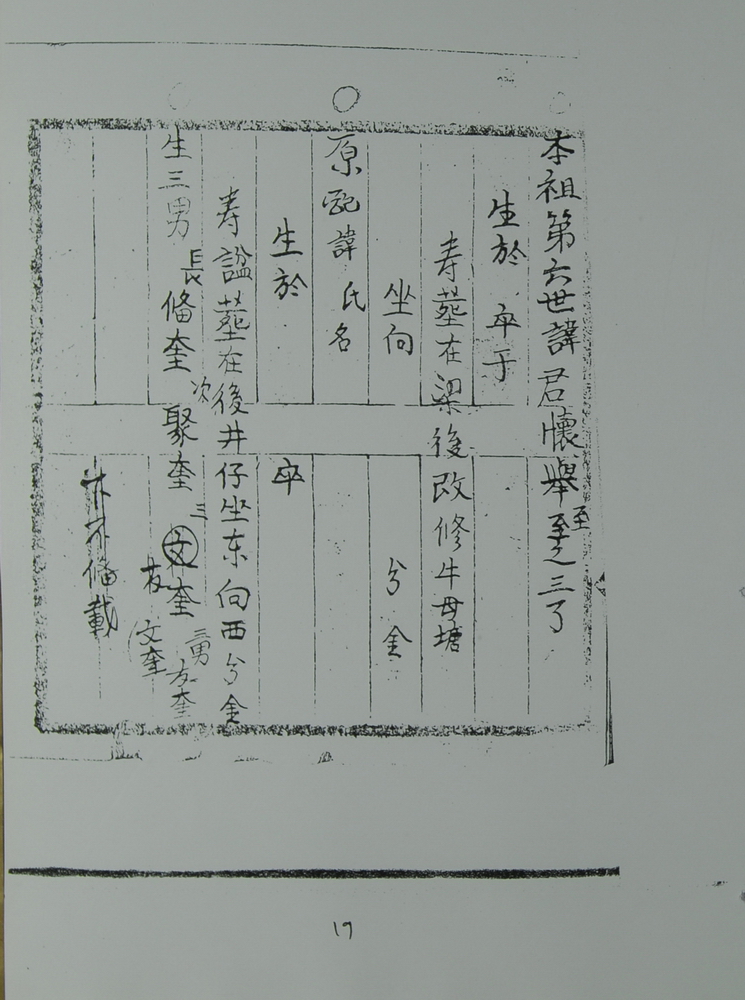 本祖第六世諱君懷舉至之三子
至
生於 卒于
寿塟在梁後改修牛母塘
坐向 分金
原配諱 氏名
生於 卒
寿諡塟在後井仔坐东向西分金
生三男 長俻奎 次聚奎 三文奎
友
三男友奎
文奎
俻載
17